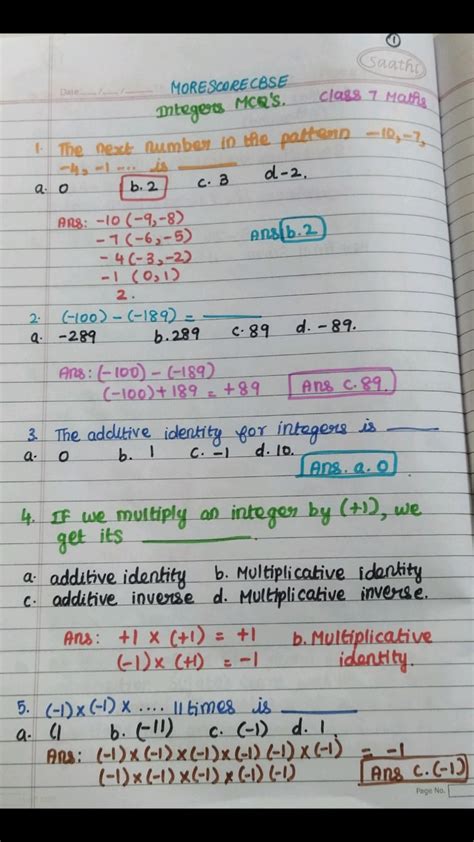 1
Saathi
Date..../..../....
MORESCORECBSE
Integers MCQ's. Class 7 Maths
1. The next number in the pattern -10, -7,
-4, -1 .... is ______
a. 0 b. 2 c. 3 d -2.
Ans: -10 (-9, -8)
-7 (-6, -5) Ans b. 2
-4 (-3, -2)
-1 (0, 1)
2.
2. (-100) - (-189) = ______
a. -289 b. 289 c. 89 d. -89.
Ans: (-100) - (-189)
(-100) + 189 = +89 Ans c. 89.
3. The additive identity for integers is ______
a. 0 b. 1 c. -1 d. 10.
Ans. a. 0
4. IF we multiply an integer by (+1), we
get its ______.
a. additive identity b. Multiplicative identity
c. additive inverse d. Multiplicative inverse.
Ans: +1 × (+1) = +1 b. Multiplicative
(-1) × (+1) = -1 identity.
5. (-1) × (-1) × .... 11 times is ______
a. 11 b. (-11) c. (-1) d. 1.
Ans: (-1) × (-1) × (-1) × (-1) (-1) × (-1) = -1
(-1) × (-1) × (-1) × (-1) (-1) Ans c. (-1)
Page No.